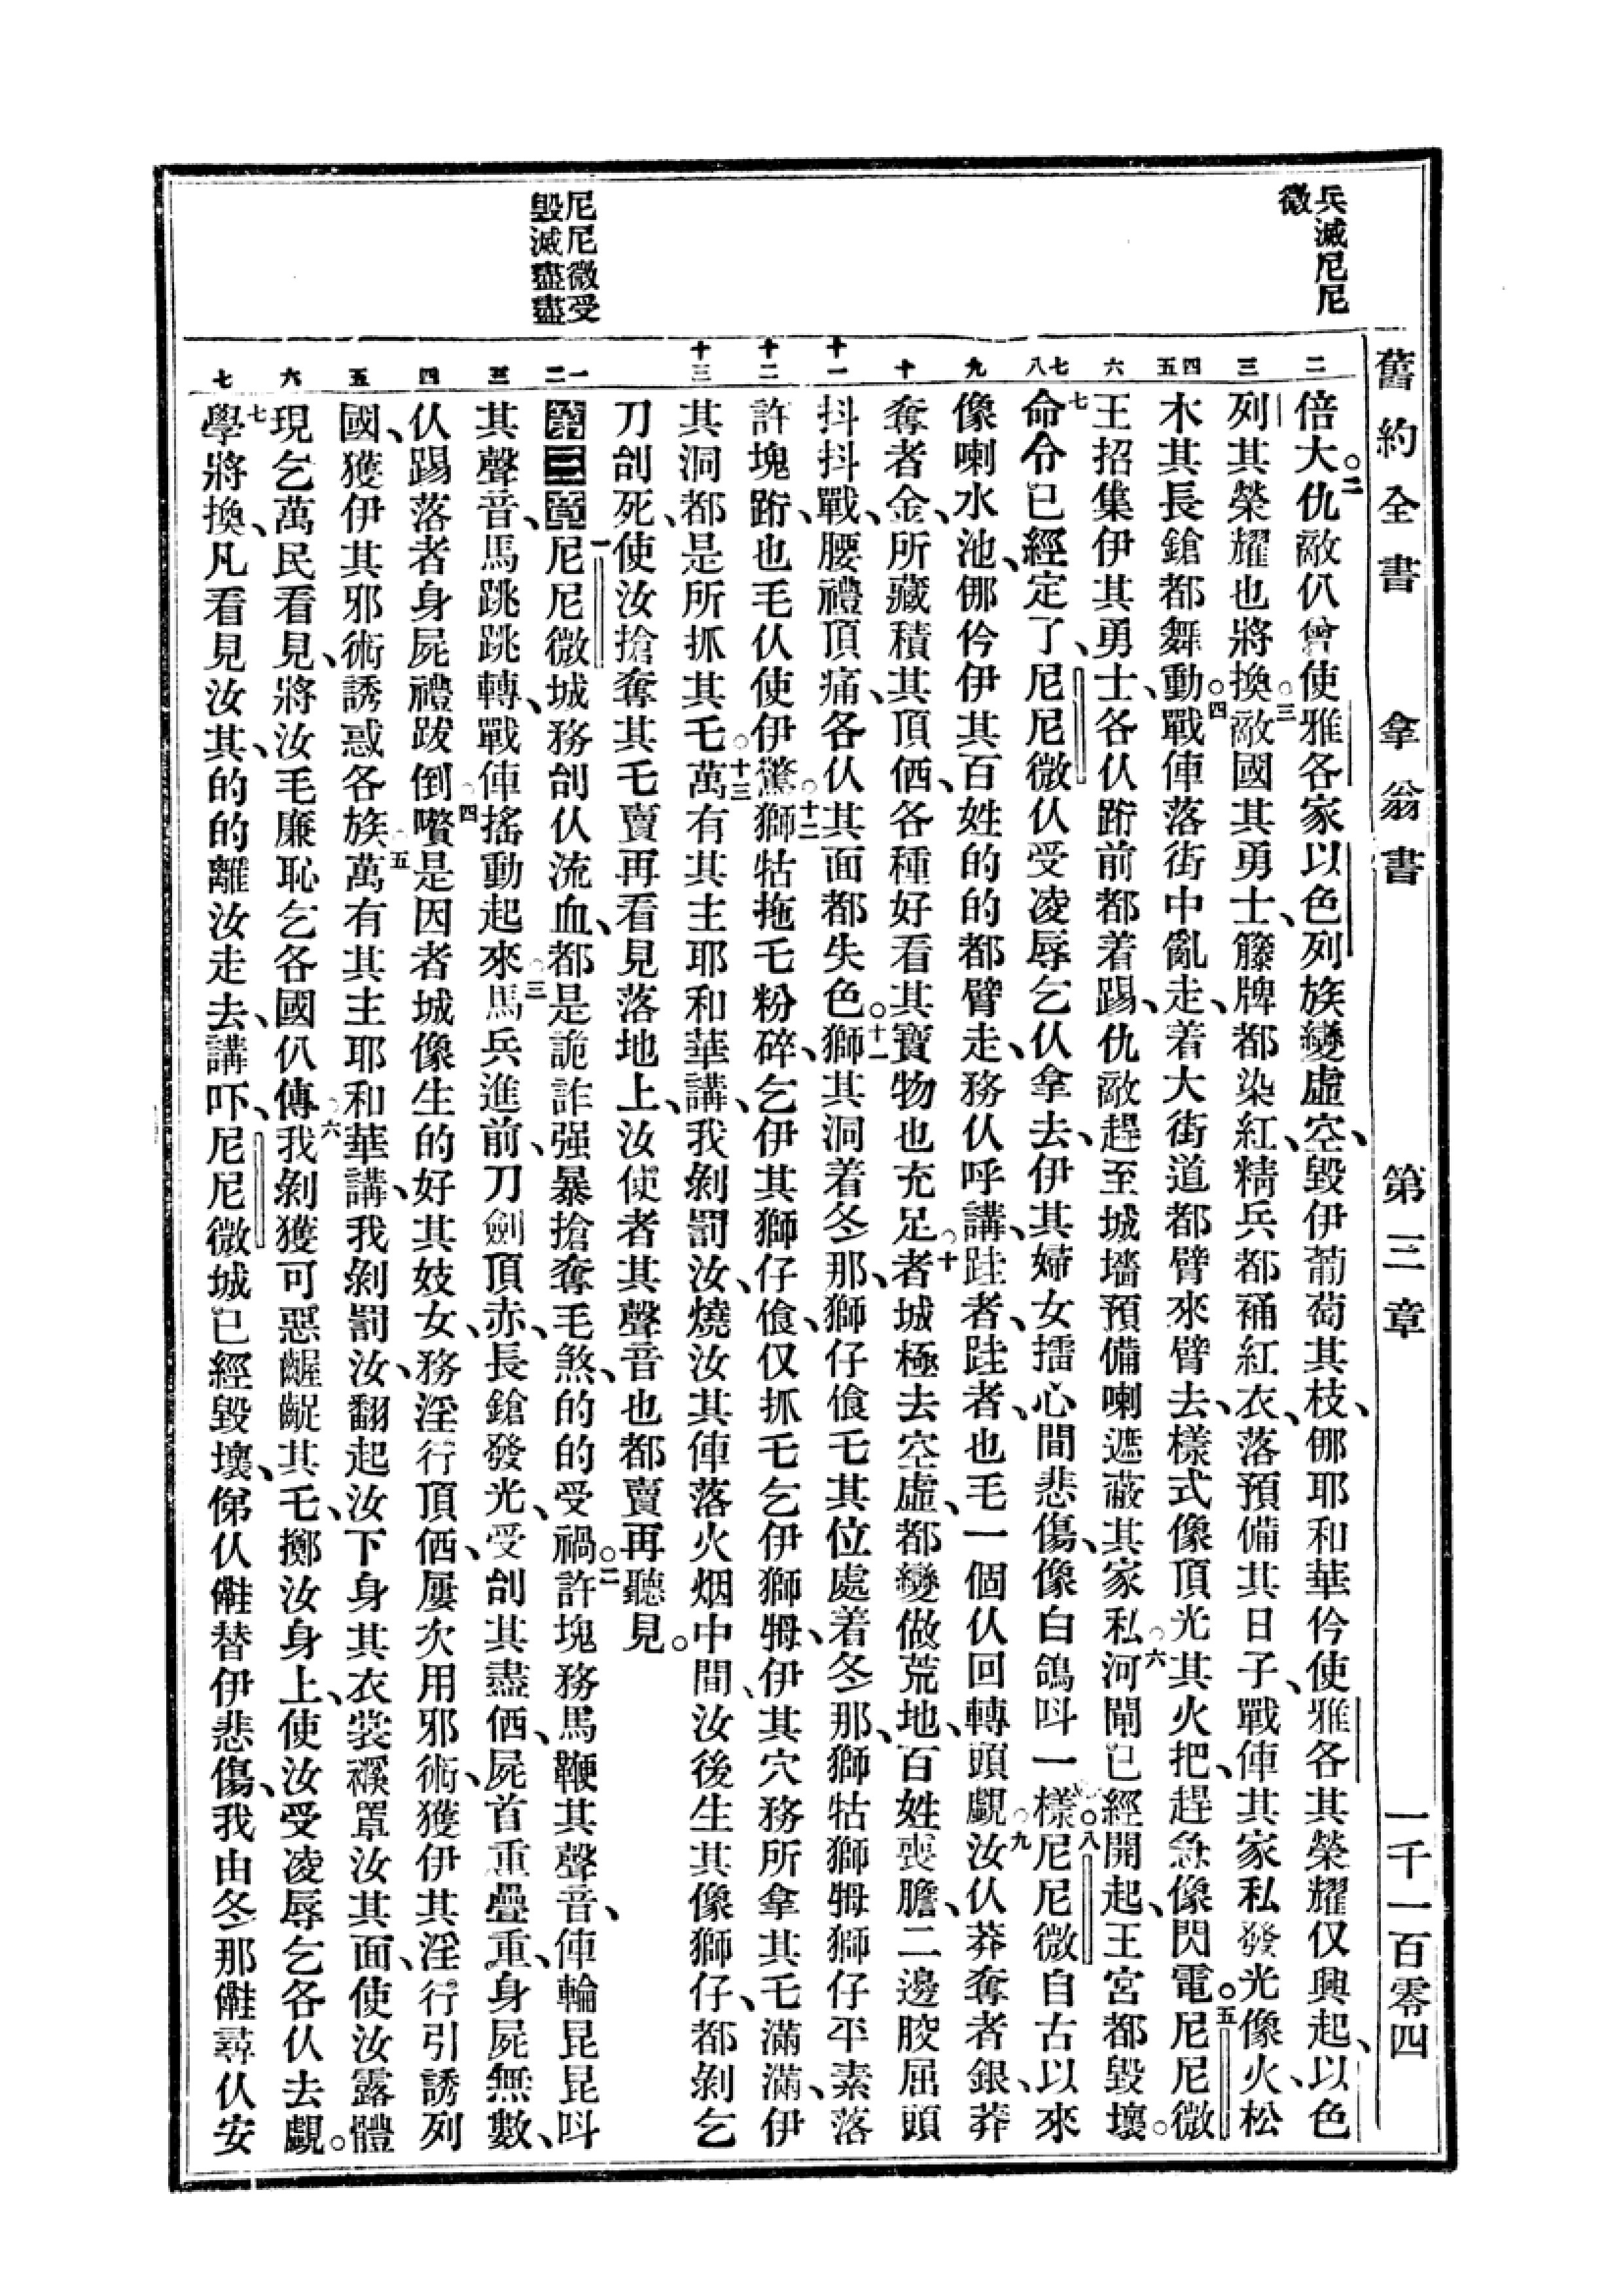 舊約全書 拿翁書 第三章 一千一百零四
兵滅尼尼
微
尼尼微受
毀滅盡盡
二 三 四 五 六 七 八 九 十 十一 十二 十三 一 二 三 四 五 六 七
倍大。二仇敵仈曾使雅各家以色列族變虛空、毀伊葡萄其枝、㑚耶和華仱使雅各其榮耀仅興起、以色
列其榮耀也將換。三敵國其勇士、籐牌都染紅、精兵都䘄紅衣、落預備其日子、戰俥其家私發光像火、松
木其長鎗都舞動。四戰俥落街中亂走、走着大街道都臂來臂去、樣式像頂光其火把、趕急像閃電。五尼尼微
王招集伊其勇士、各仈跻前都着踢、仇敵趕至城墻預備喇遮蔽其家私。六河閘已經開起、王宮都毀壞。
七命令已經定了、尼尼微仈受凌辱乞仈拿去、伊其婦女擂心間悲傷、像白鴿呌一樣。八尼尼微自古以來
像喇水池、㑚仱伊其百姓的的都臂走、務仈呼講、跬者、跬者、也毛一個仈回轉頭覷。九汝仈莽奪者銀、莽
奪者金、所藏積其頂価、各種好看其寶物也充足。十者城極去空虛、都變做荒地、百姓喪膽、二邊骹屈頭
抖抖戰、腰禮頂痛、各仈其面都失色。十一獅其洞着冬那、獅仔飡乇其位處着冬那、獅牯獅姆獅仔平素落
許塊跻、也毛仈使伊驚。十二獅牯拖乇粉碎、乞伊其獅仔飡、仅抓乇乞伊獅姆、伊其穴務所拿其乇滿滿、伊
其洞都是所抓其乇。十三萬有其主耶和華講、我剝罰汝、燒汝其俥落火烟中間、汝後生其像獅仔、都剝乞
刀刣死、使汝搶奪其乇賣再看見落地上、汝使者其聲音也都賣再聽見。
第三章 一尼尼微城務刣仈流血、都是詭詐强暴搶奪毛煞、的的受禍。二許塊務馬鞭其聲音、俥輪昆昆呌
其聲音、馬跳跳轉、戰俥搖動起來。三馬兵進前、刀劍頂赤、長鎗發光、受刣其盡価、屍首重疊重、身屍無數、
仈踢落者身屍禮跋倒。四嚽是因者城像生的好其妓女、務淫行頂価、屢次用邪術、獲伊其淫行引誘列
國、獲伊其邪術誘惑各族。五萬有其主耶和華講、我剝罰汝、翻起汝下身其衣裳襖罩汝其面、使汝露體
現乞萬民看見、將汝毛廉恥乞各國仈傳。六我剝獲可惡齷齪其乇、擲汝身上、使汝受凌辱乞各仈去覷。
七學將換、凡看見汝其、的的離汝走去、講吓、尼尼微城已經毀壞、俤仈𠆧替伊悲傷、我由冬那𠆧尋仈安